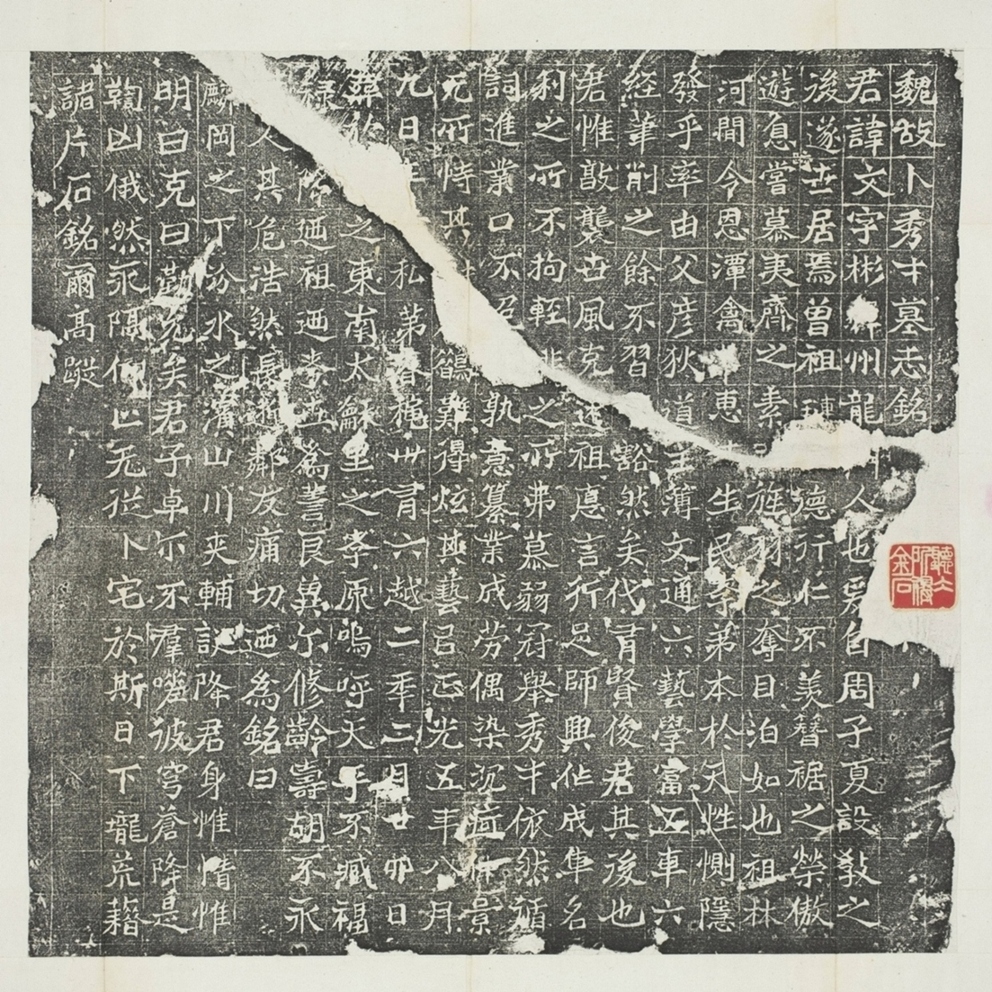 魏故卜秀才墓志銘
君諱文字彬州龍人也爰自周子夏設教之
後遂世居焉曾祖德行仁不羨簪裾之榮傲
遊自嘗慕夷齊之素旌材之奪目泊如也祖林
河間令恩潭禽惠生民孝弟本於天性惻隱
發乎率由父彦狄道主薄文通六藝學富五車六
經筆削之餘不習豁然矣代有賢俊君其後也
君惟敦襲世風克述祖悳言行足師興作成隼名
利之所不拘輕之所弗慕弱冠舉秀才依然循
詞進業口不孰意纂業成勞偶染沉所景
无所恃其鶴難得炫其藝吕正光五年八月
九日私第春穐卅有六越二年二月廿卯日
葬於之東南太穌里之孝原嗚呼天乎不臧福
禄降迺祖迺為善良冀尓修齡壽胡不永
人其危浩然長逝鄰友痛切迺為銘曰
麟岡之下汾水之濱山川夾輔訣降君身惟情惟
明曰克曰勤允矣君子卓尓不羣噬彼穹蒼降是
鞫凶俄然永隔何亡无從卜宅於斯日下壠荒籍
諸片石銘爾高蹤